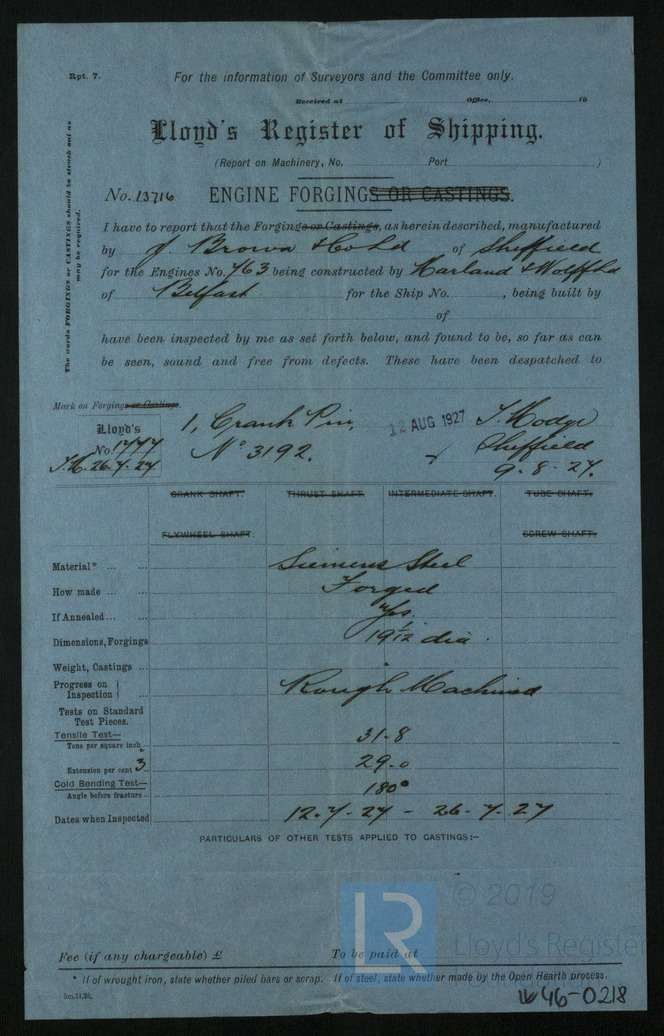 Rpt. 7.
For the information of Surveyors and the Committee only.
Received at Office, 19
Lloyd's Register of Shipping.
(Report on Machinery, No. Port )
No. 13716 ENGINE FORGINGS OR CASTINGS.
The words FORGINGS or CASTINGS should be struck out as may be required.
I have to report that the Forgings or Castings, as herein described, manufactured
by J. Brown & Co Ld of Sheffield
for the Engines No. 763 being constructed by Harland & Wolff Ld
of Belfast for the Ship No. , being built by
of
have been inspected by me as set forth below, and found to be, so far as can
be seen, sound and free from defects. These have been despatched to
Mark on Forgings or Castings.
Lloyd's
No. 1777
26.7.27
1, Crank Pin,
No 3192.
12 AUG 1927
Sheffield
9.8.27.
CRANK SHAFT. THRUST SHAFT. INTERMEDIATE SHAFT. TUBE SHAFT.
FLYWHEEL SHAFT. SCREW SHAFT.
Material* ... ... Siemens Steel
How made ... ... Forged
If Annealed ... ... Yes.
Dimensions, Forgings 19 1/12 dia.
Weight, Castings ...
Progress on Inspection ... Rough Machined
Tests on Standard Test Pieces.
Tensile Test—
Tons per square inch 31.8
Extension per cent 3 29.0
Cold Bending Test—
Angle before fracture 180°
Dates when Inspected 12.7.27 - 26.7.27
PARTICULARS OF OTHER TESTS APPLIED TO CASTINGS:—
LR
© 2019
Lloyd's Register
Fee (if any chargeable) £ To be paid at
* If of wrought iron, state whether piled bars or scrap. If of steel, state whether made by the Open Hearth process.
5m.11.26.
W46-0218